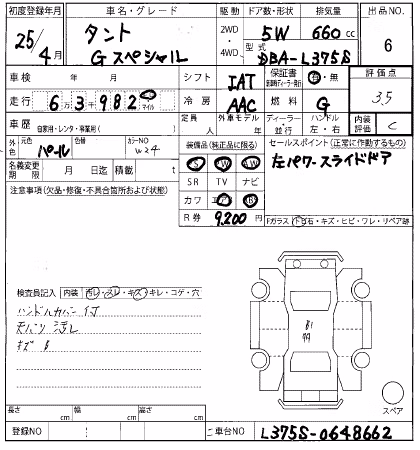 初度登録年月 車名・グレード 駆動 ドア数・形状 排気量 出品NO.
25/4月 タント 2WD・4WD 5W 660cc 6
Gスペシャル 型式 DBA-L375S
車検 年 月 シフト IAT 保証書 有・無 評価点
走行 6万3千982 マイル 冷房 AAC 燃料 G 3.5
車歴 自家用・レンタ・車業用( ) 定員 人 外車モデル 年 ディーラー・並行 ハンドル 左・右 内装評価 C
外色 元色 パール 色替 カラーNO W24 装備品(純正品に限る) セールスポイント(正常に作動するもの)
名義変更期限 月 日迄 積載 t 左パワースライドドア
SR TV ナビ
注意事項(欠品・修復・不具合箇所および状態) カワ
R券 9,200円
Fガラス(トビ石・キズ・ヒビ・ワレ・リペア跡)
検査員記入 内装 汚レ・スレ・キズ・キレ・コゲ・穴
ハンドルカバー付
天バリ 汚レ
キズ B
長さ cm 幅 cm 高さ cm スペア
登録NO 車台NO L375S-0648662